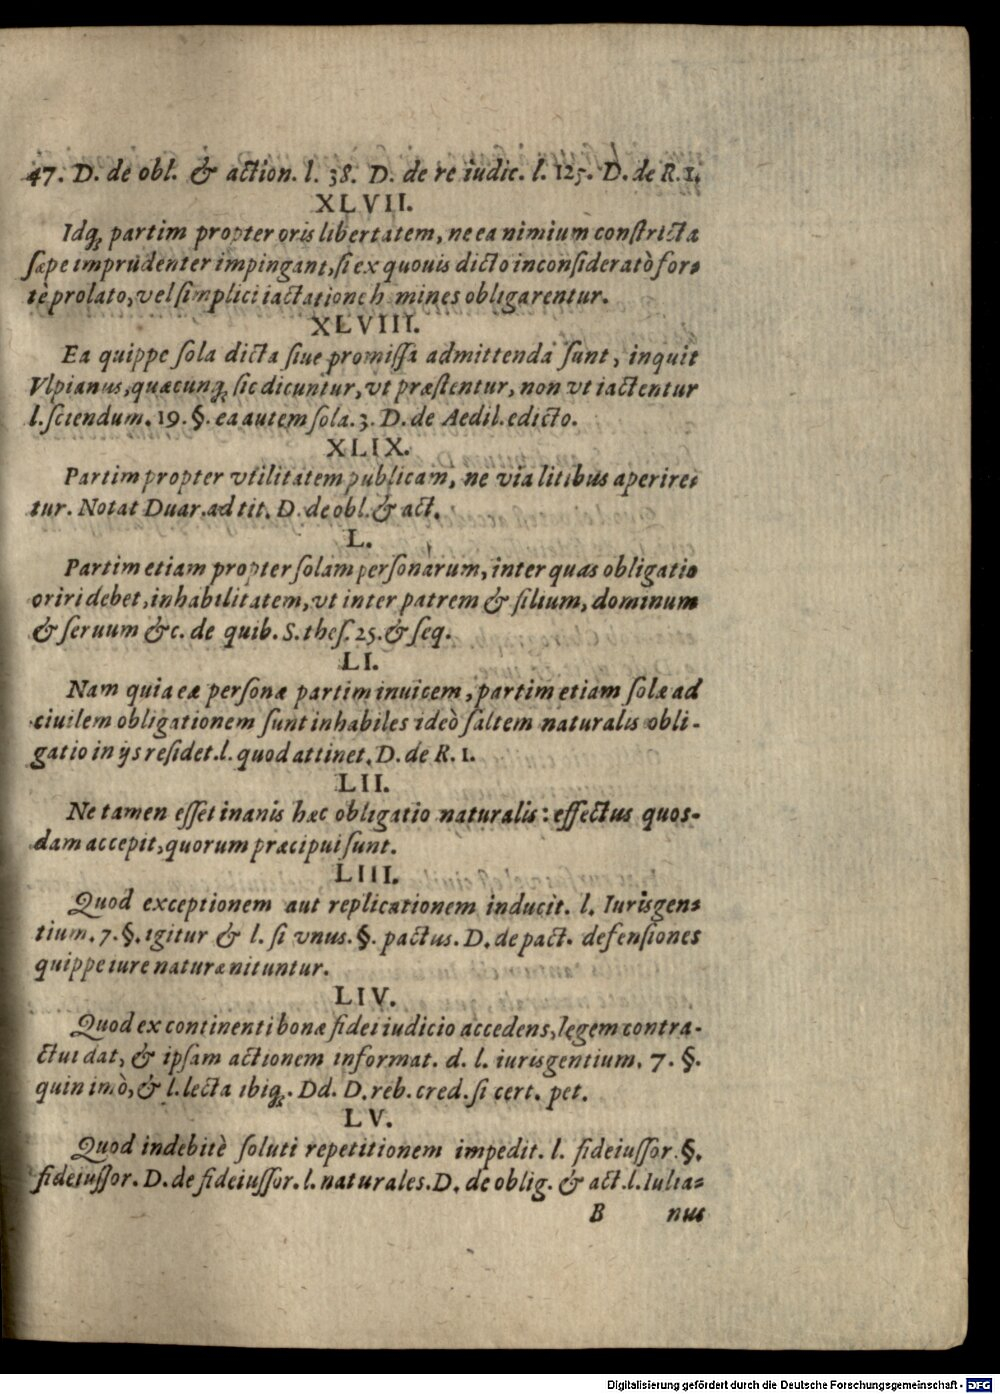 47. D. de obl. & action. l. 38. D. de re iudic. l. 125. D. de R. I.
XLVII.
Idq́; partim propter oris libertatem, ne ea nimium constricta
sæpe imprudenter impingant, si ex quouis dicto inconsideratò for-
tè prolato, vel simplici iactatione h mines obligarentur.
XLVIII.
Ea quippe sola dicta siue promissa admittenda sunt, inquit
Vlpianus, quæcunq́; sic dicuntur, vt præstentur, non vt iactentur
l. sciendum. 19. §. ea autem sola. 3. D. de Aedil. edicto.
XLIX.
Partim propter vtilitatem publicam, ne via litibus aperire-
tur. Notat Duar. ad tit. D. de obl. & act.
L.
Partim etiam propter solam personarum, inter quas obligatio
oriri debet, inhabilitatem, vt inter patrem & filium, dominum
& seruum &c. de quib. S. thes. 25. & seq.
LI.
Nam quia eæ personæ partim inuicem, partim etiam solæ ad
ciuilem obligationem sunt inhabiles ideò saltem naturalis obli-
gatio in ijs residet. l. quod attinet. D. de R. I.
LII.
Ne tamen esset inanis hæc obligatio naturalis: effectus quos-
dam accepit, quorum præcipui sunt.
LIII.
Quod exceptionem aut replicationem inducit. l. Iurisgen-
tium. 7. §. igitur & l. si vnus. §. pactus. D. de pact. defensiones
quippe iure naturæ nituntur.
LIV.
Quod ex continenti bonæ fidei iudicio accedens, legem contra-
ctui dat, & ipsam actionem informat. d. l. iurisgentium. 7. §.
quin imò, & l. lecta ibiq́;. Dd. D. reb. cred. si cert. pet.
LV.
Quod indebitè soluti repetitionem impedit. l. fideiussor. §.
fideiussor. D. de fideiussor. l. naturales. D. de oblig. & act. l. Iulia-
B nus
Digitalisierung gefördert durch die Deutsche Forschungsgemeinschaft - DFG